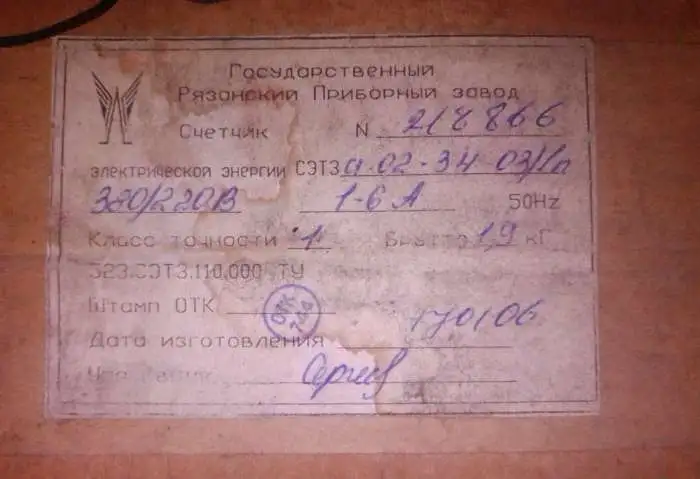 Государственный
Рязанский Приборный завод
Счетчик N 218866
электрической энергии СЭТЗ а-02-34 03/1п
380/220В 1-6 А 50Hz
Класс точности 1 Брутто 1,9 кГ
523.СЭТЗ.110.000 ТУ
Штамп ОТК ОТК 244
Дата изготовления 0106